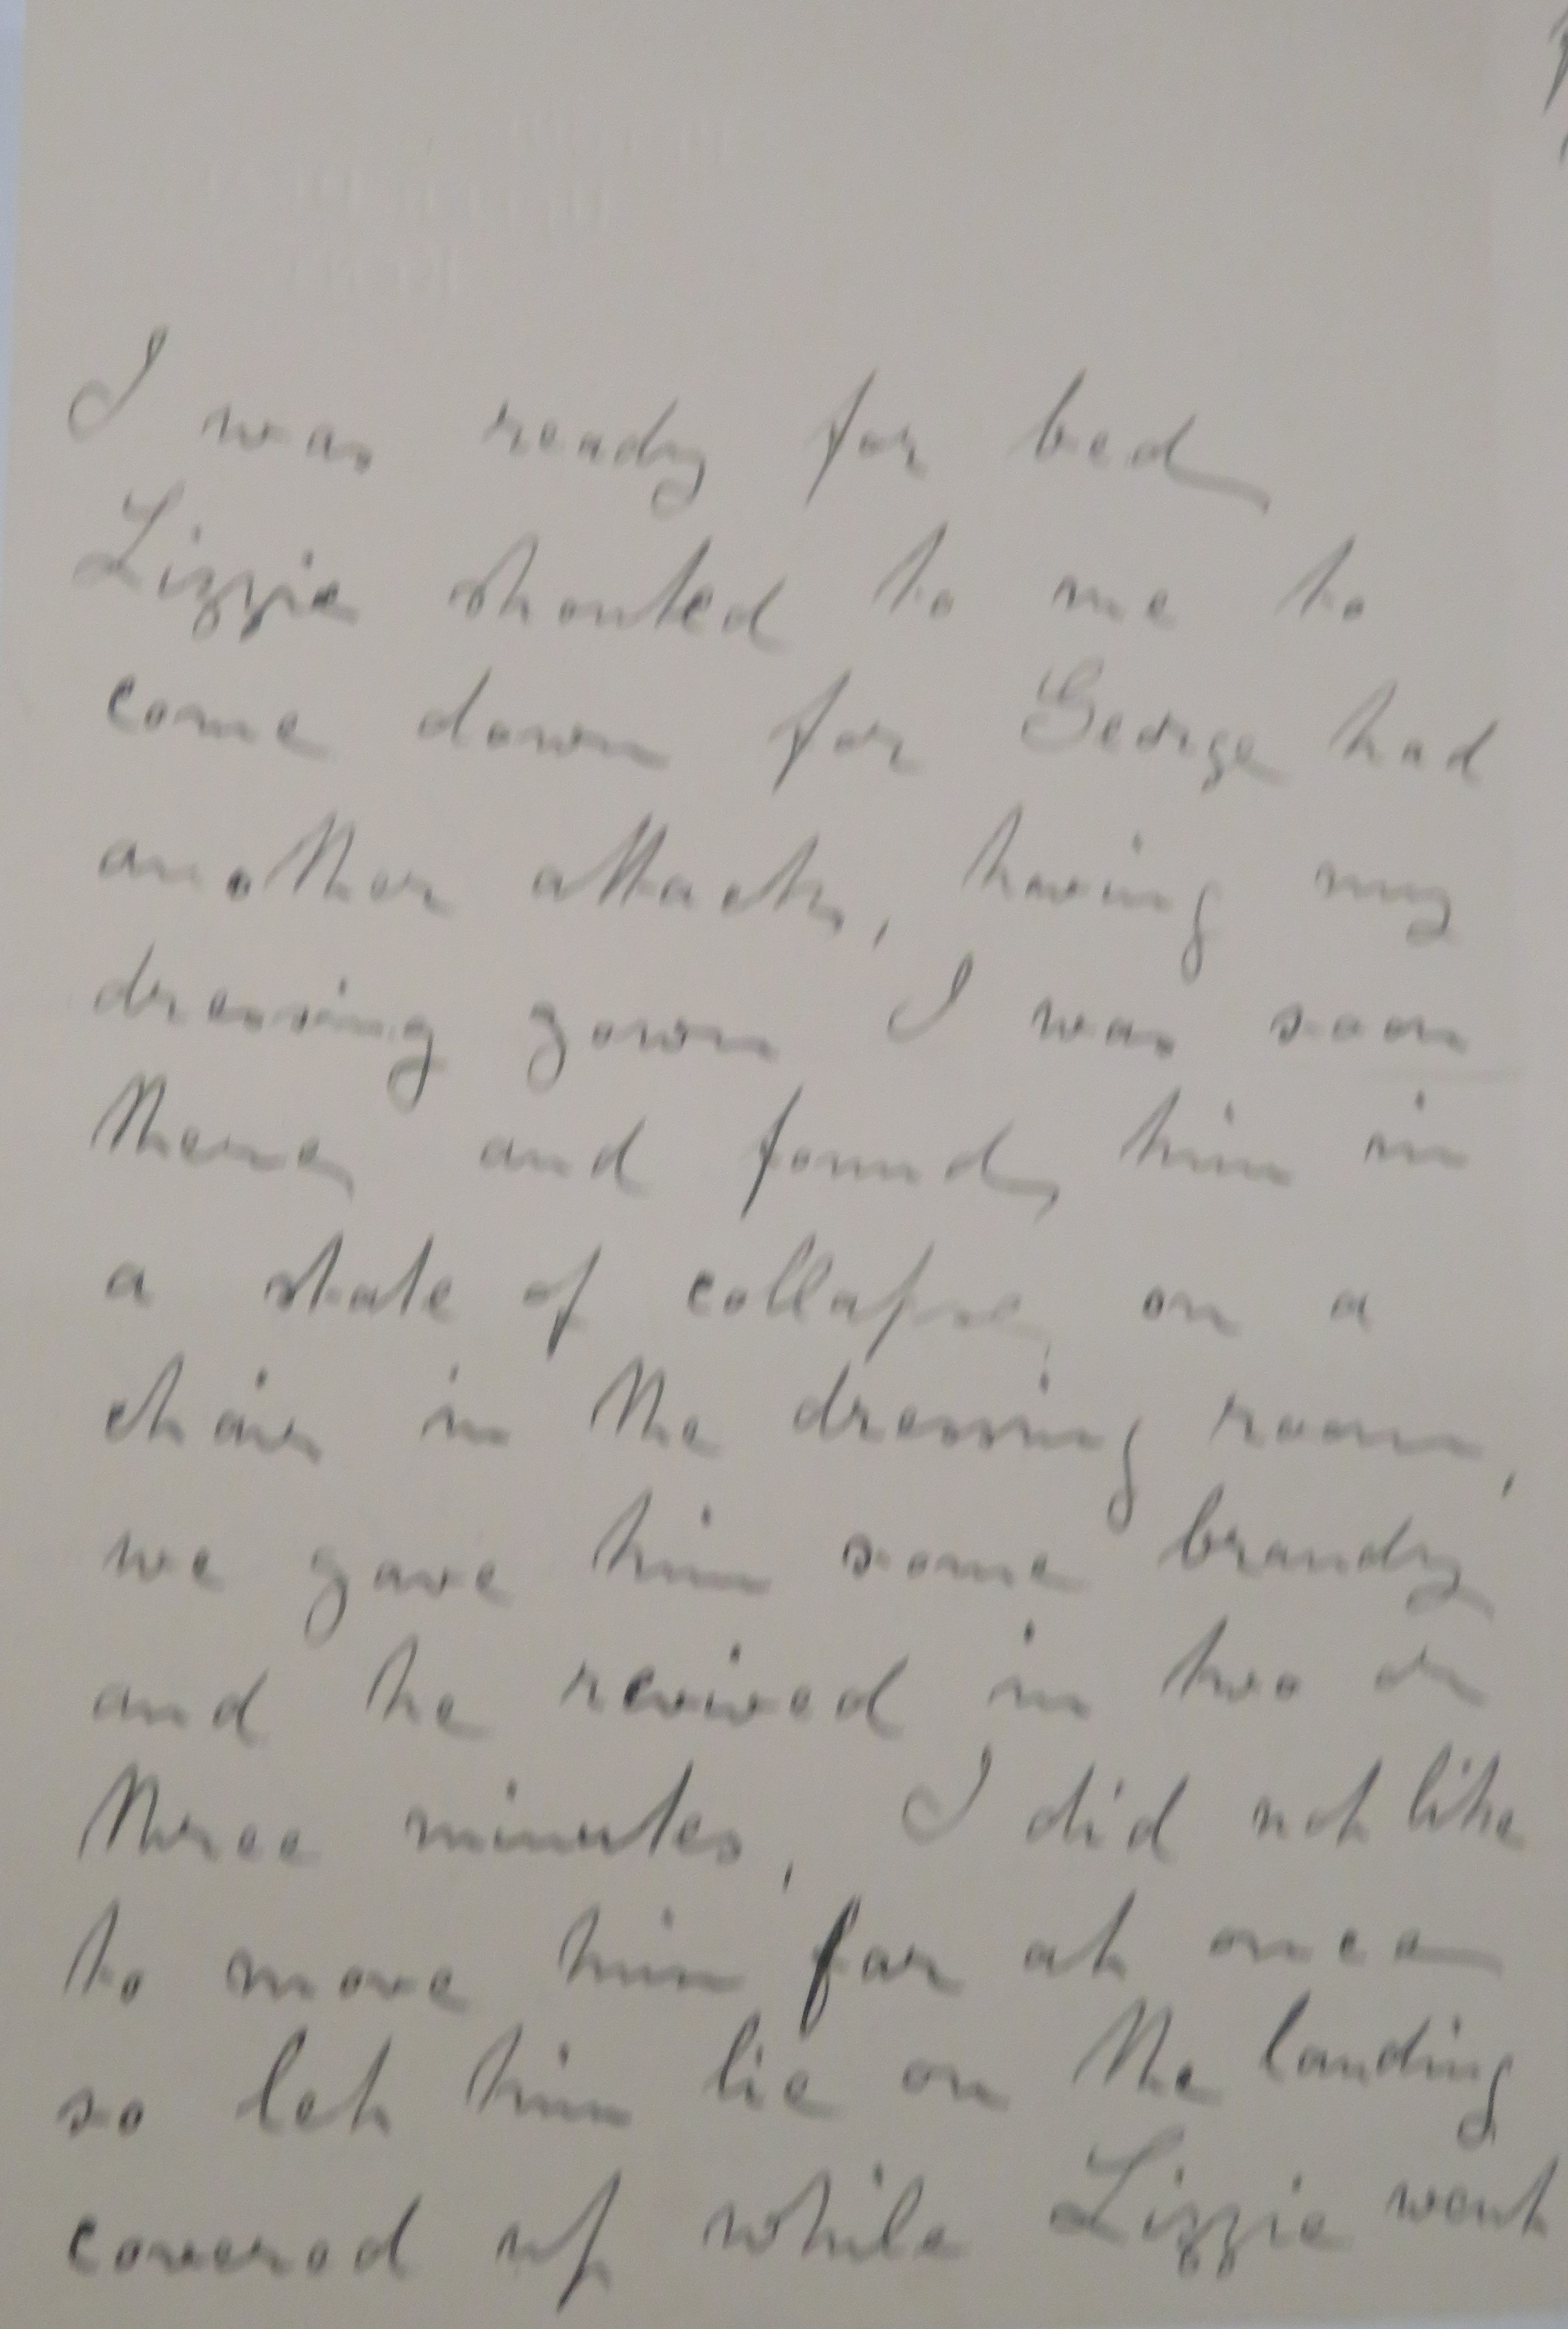 I was ready for bed
Lizzie shouted to me to
come down for George had
another attack, having my
dressing gown I was soon
there and found him in
a state of collapse on a
chair in the dressing room,
we gave him some brandy
and he revived in two or
three minutes, I did not like
to move him far at once
so let him lie on the landing
covered up while Lizzie went